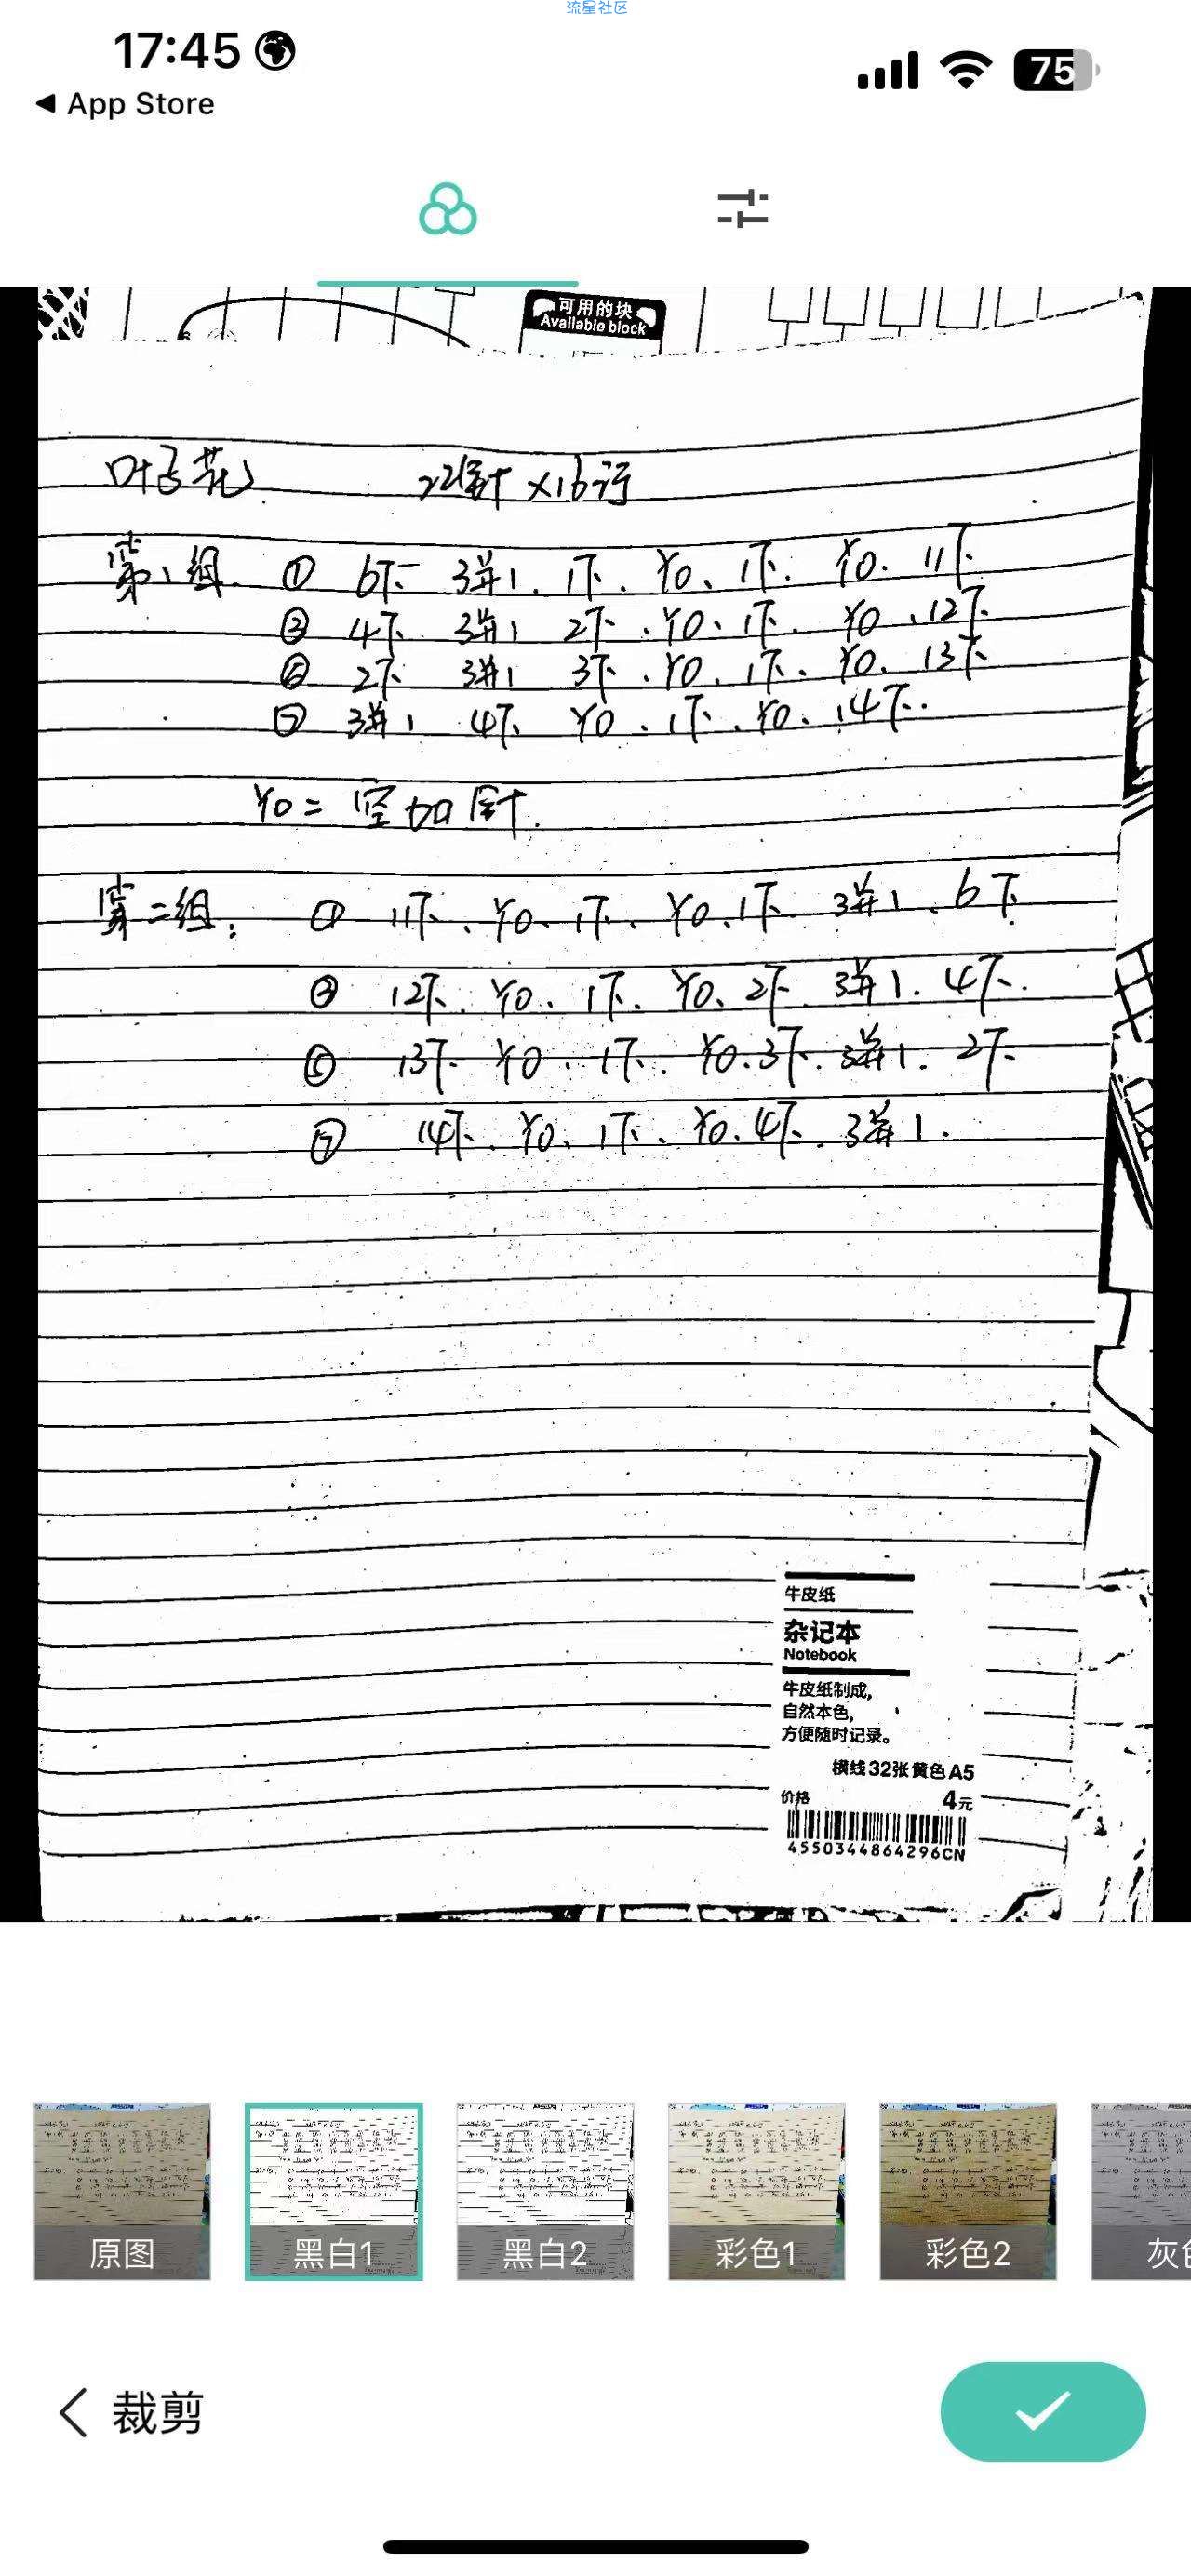 流星社区
17:45
75
◀ App Store
可用的块
Available block
叶子花 22针×16行
第1组. ① 6下. 3并1. 1下. Y0、1下. Y0. 11下
③ 4下 3并1 2下.Y0、1下. Y0.12下
⑤ 2下 3并1 3下.Y0.1下、Y0. 13下
⑦ 3并1 4下 Y0、1下、Y0.14下.
Y0=空加针.
第二组: ① 11下、Y0.1下、Y0.1下. 3并1.6下
③ 12下. Y0、1下、Y0、2下. 3并1. 4下.
⑤ 13下. Y0.1下. Y0.3下.3并1. 2下
⑦ 14下、Y0、1下、Y0.4下. 3并1.
牛皮纸
杂记本
Notebook
牛皮纸制成,
自然本色,
方便随时记录。
横线32张黄色A5
价格 4元
4550344864296CN
原图 黑白1 黑白2 彩色1 彩色2 灰色
裁剪